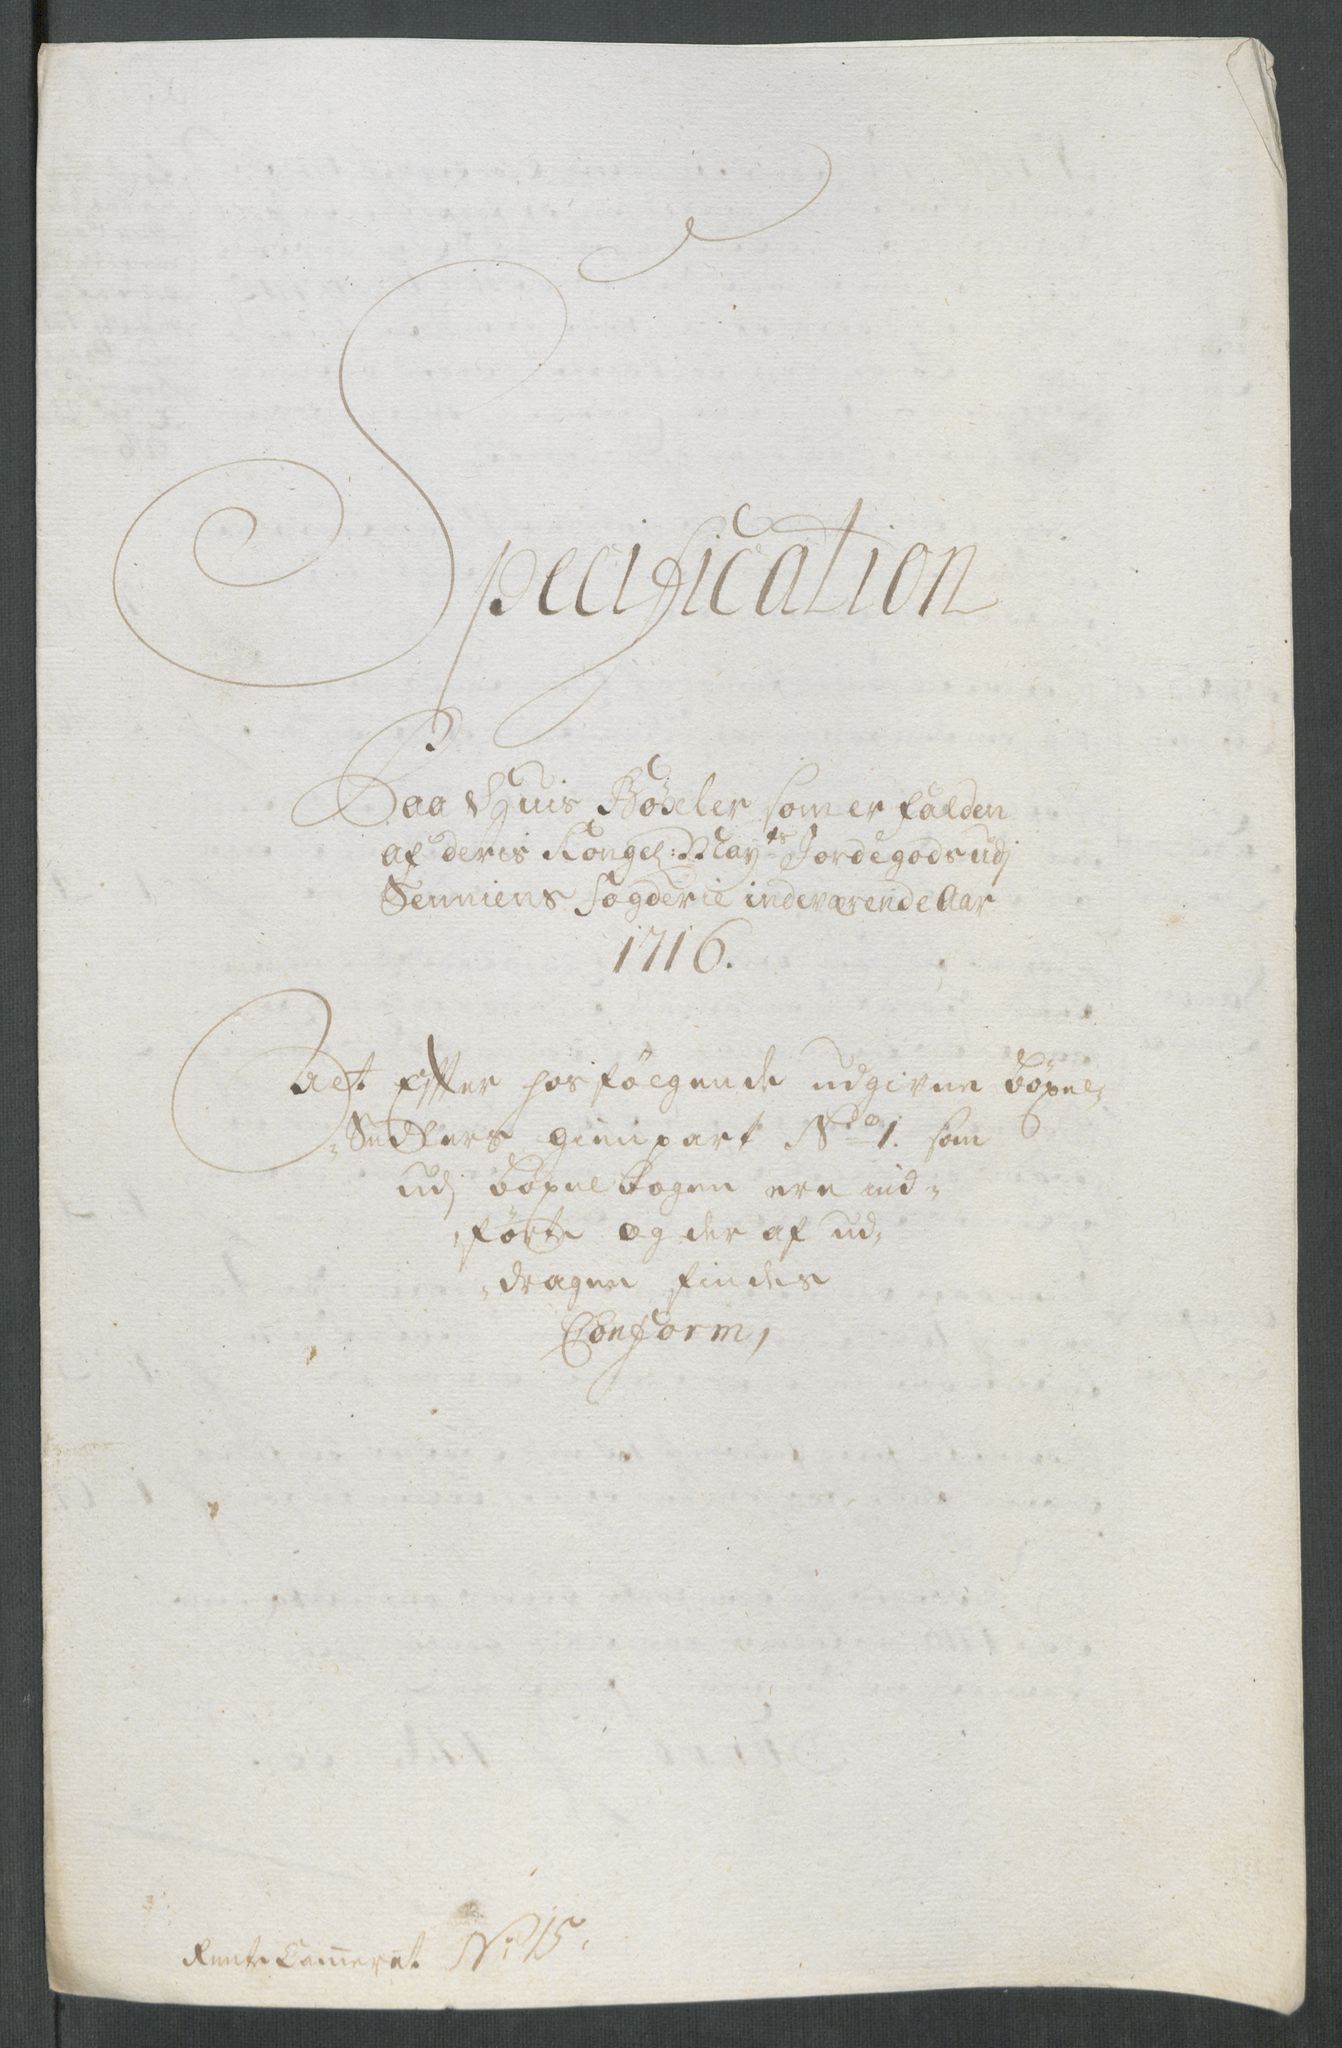 Specification
Paa Hvis Böxler som er falden
af deris Kongel: Mayts Jordegods udj
Senniens fogderie indeværende Aar
1716.
Alt Effter hosfölgende udgivne böxel-
Sedlers gienpart No 1. som
udj böxelbogen ere ind-
förte og der af ud-
dragen findes
Conform,
Rente Cammeret No 15.